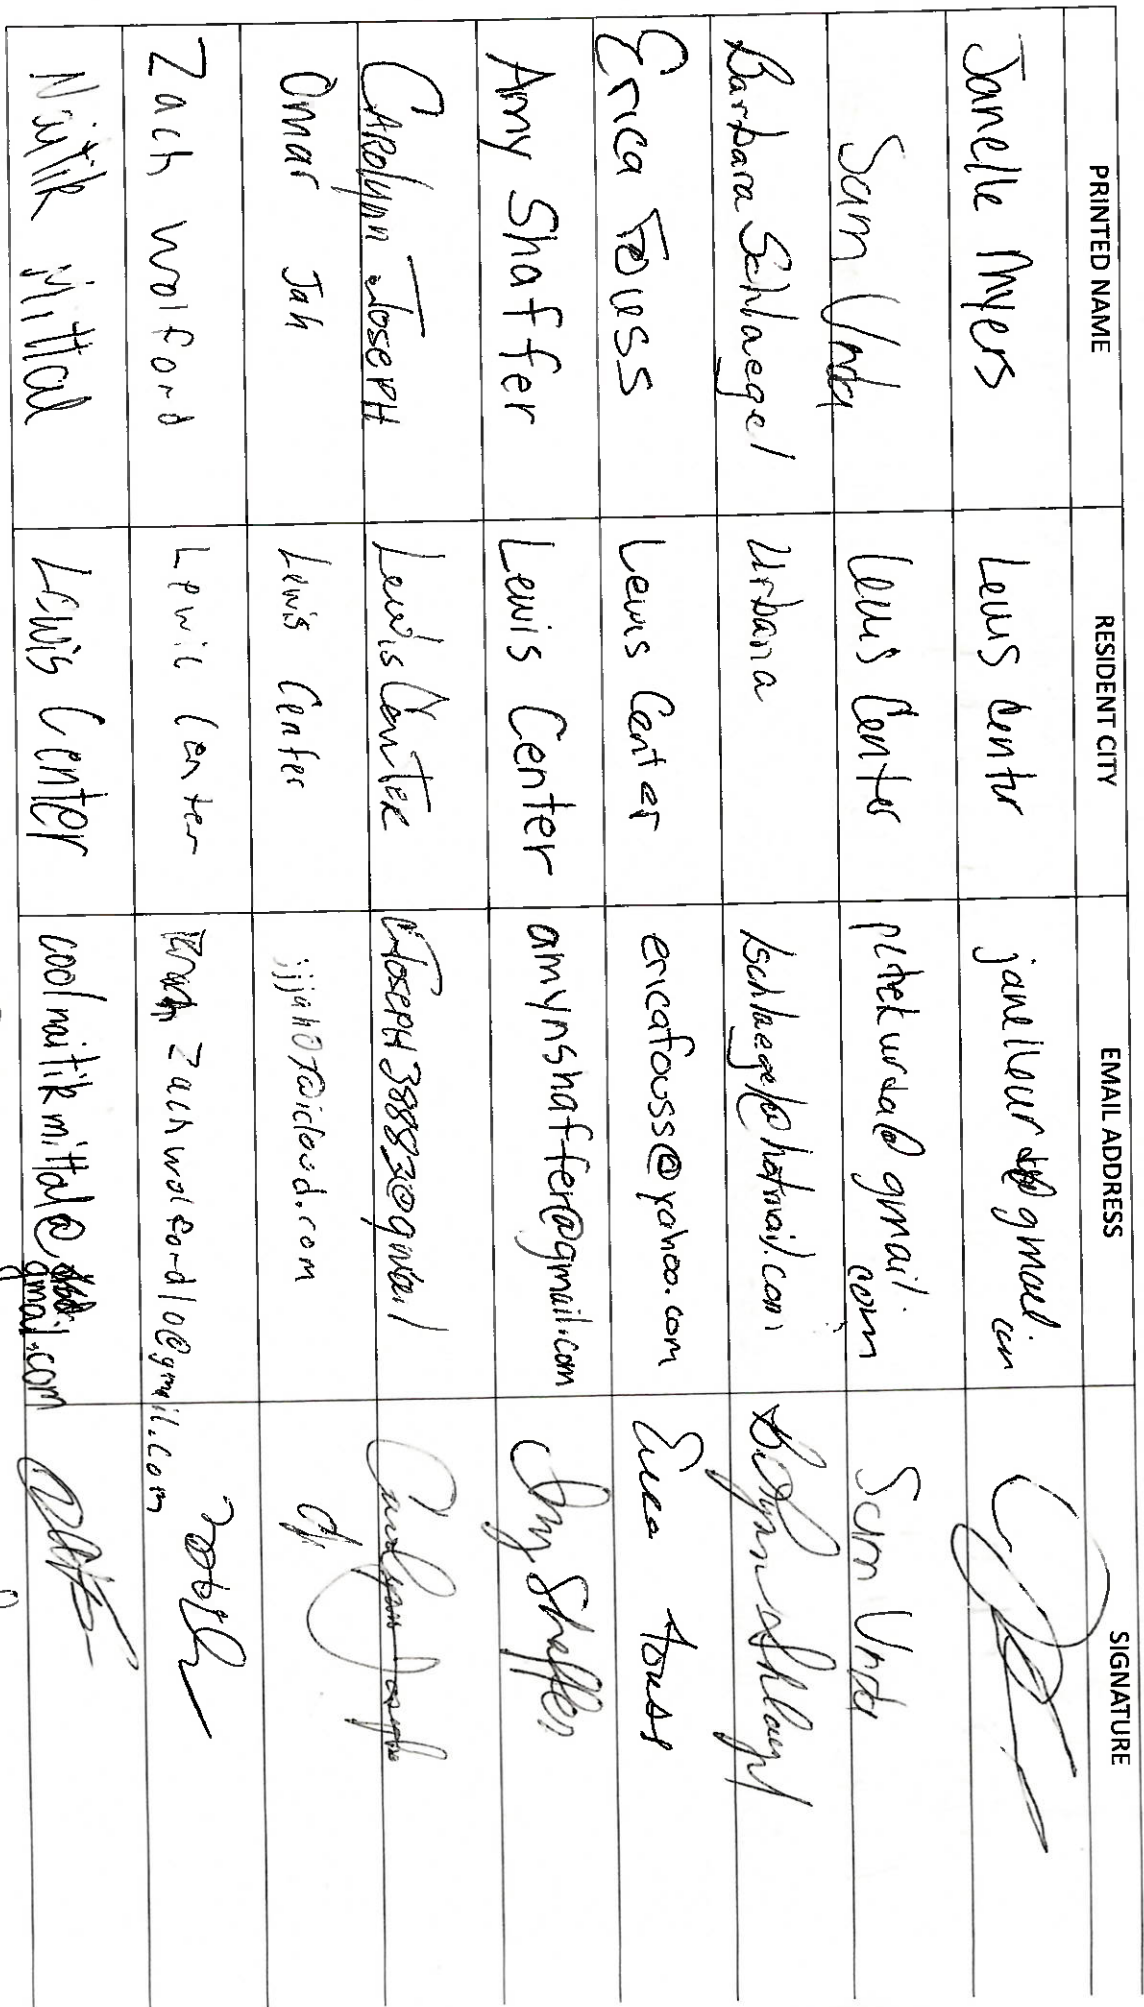 PRINTED NAME RESIDENT CITY EMAIL ADDRESS SIGNATURE
Janelle Myers Lewis Center gmail
Sam Urda Lewis Center petekurda@gmail.com Sam Urda
Barbara Schlaegel Urbana bschlaegel@hotmail.com
Erica Fouss Lewis Center ericafouss@yahoo.com Erica Fouss
Amy Shaffer Lewis Center amynshaffer@gmail.com Amy Shaffer
CAROlynn JosePH Lewis CenTER Carolynn Joseph
Omar Jah Lewis Center
Zach Wolford Lewis Center Zachwolford10@gmail.com
Naitik Mittal Lewis Center coolnaitikmittal@gmail.com